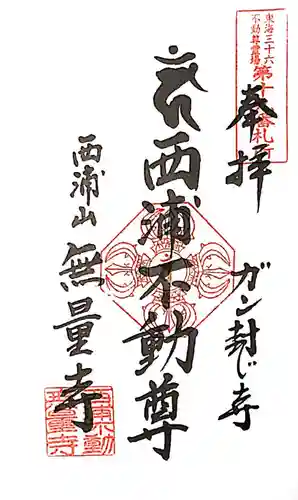 東海三十六
不動尊霊場
第十番札所
奉拝
ガン封じ寺
西浦不動尊
西浦山 無量寺
西浦不動
無量寺